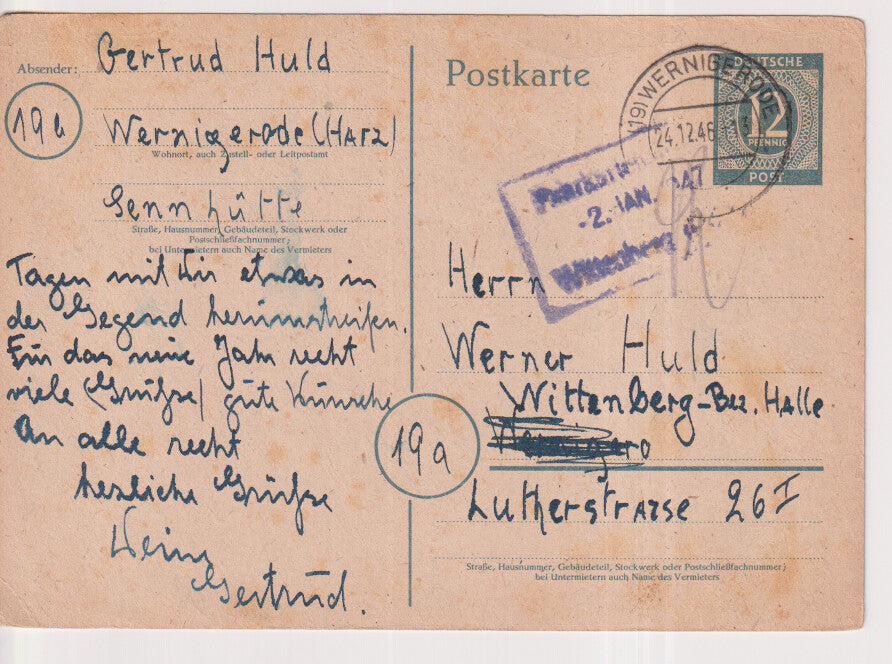 Absender: Gertrud Huld
19a
Wernigerode (Harz)
Wohnort, auch Zustell- oder Leitpostamt
Sennhütte
Straße, Hausnummer, Gebäudeteil, Stockwerk oder
Postschließfachnummer;
bei Untermietern auch Name des Vermieters
Tagen mit Dir etwas in
der Gegend herumstreifen.
Für das neue Jahr recht
viele (Grüße) gute Wünsche
An alle recht
herzliche Grüße
Gertrud.
Postkarte
(19) WERNIGERODE
24.12.46
DEUTSCHE
12
PFENNIG
POST
-2. JAN. 1947
Wittenberg
Herrn
Werner Huld
Wittenberg-Bez. Halle
19a
Lutherstrasse 26 I
Straße, Hausnummer, Gebäudeteil, Stockwerk oder Postschließfachnummer;
bei Untermietern auch Name des Vermieters